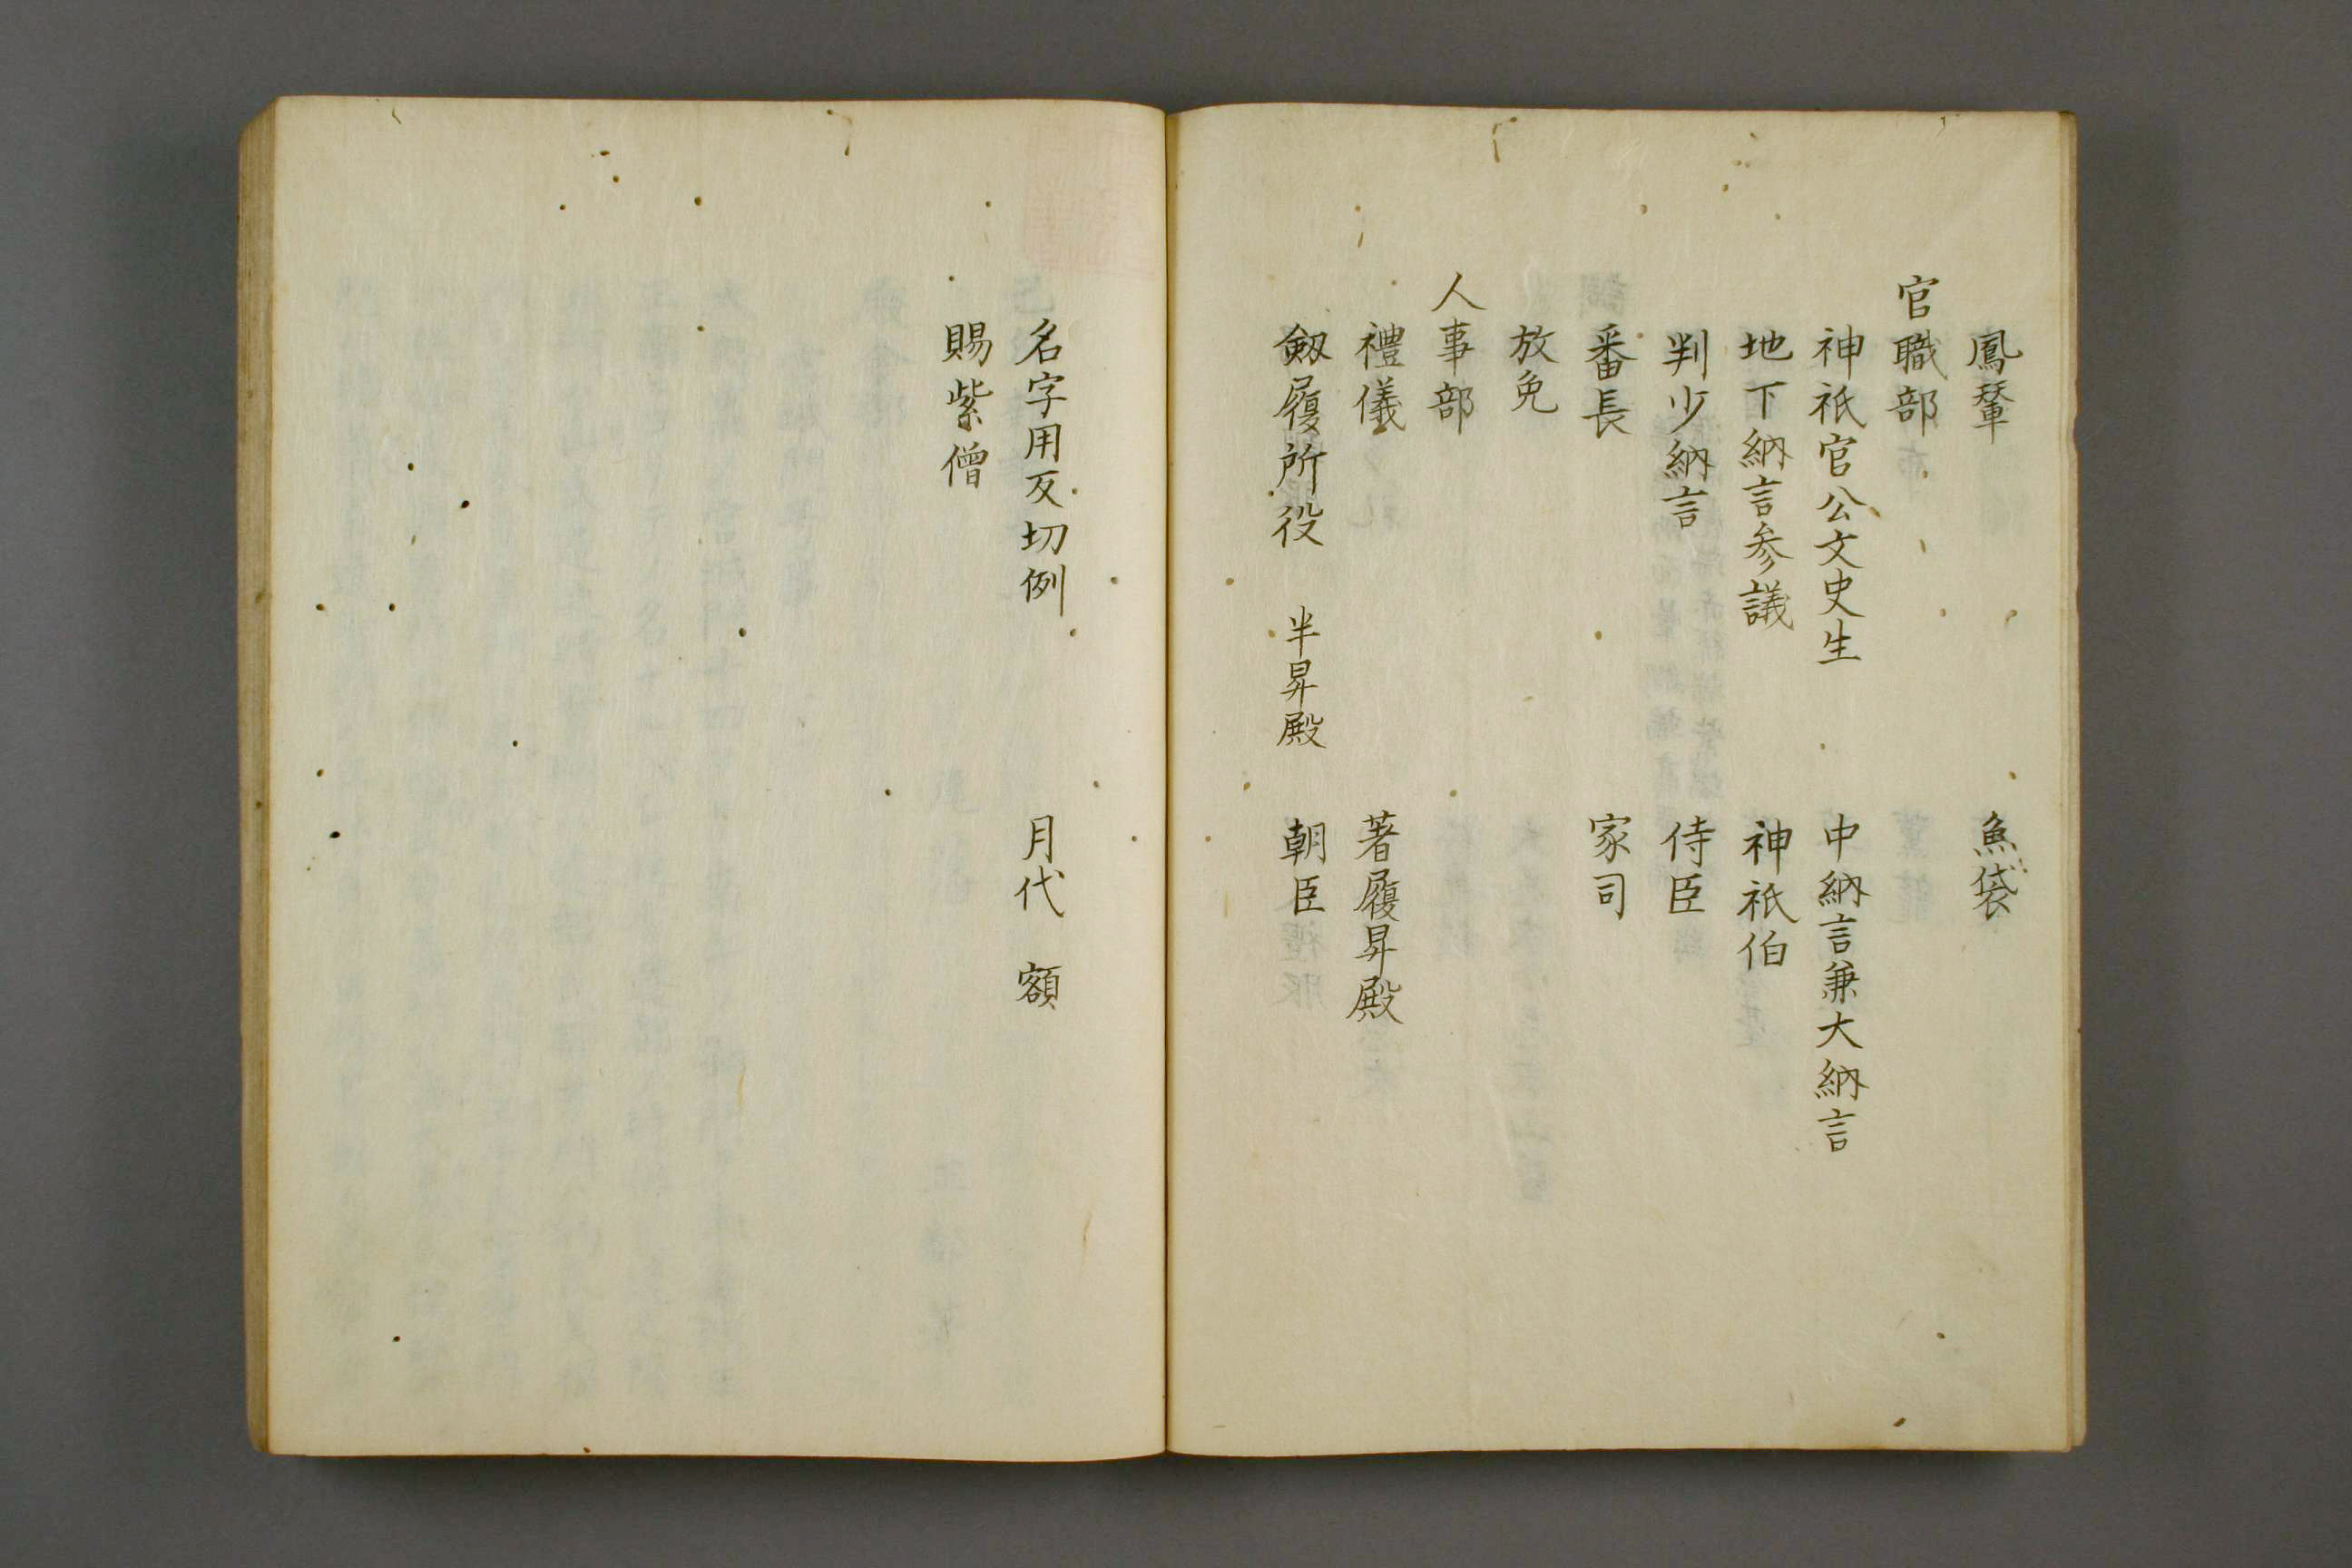 鳳輦　魚袋
官職部
神祇官公文史生　中納言兼大納言
地下納言参議　神祇伯
判少納言　侍臣
番長　家司
放免
人事部
禮儀　著履昇殿
剱履所役　半昇殿　朝臣
名字用反切例　月代　額
賜紫僧